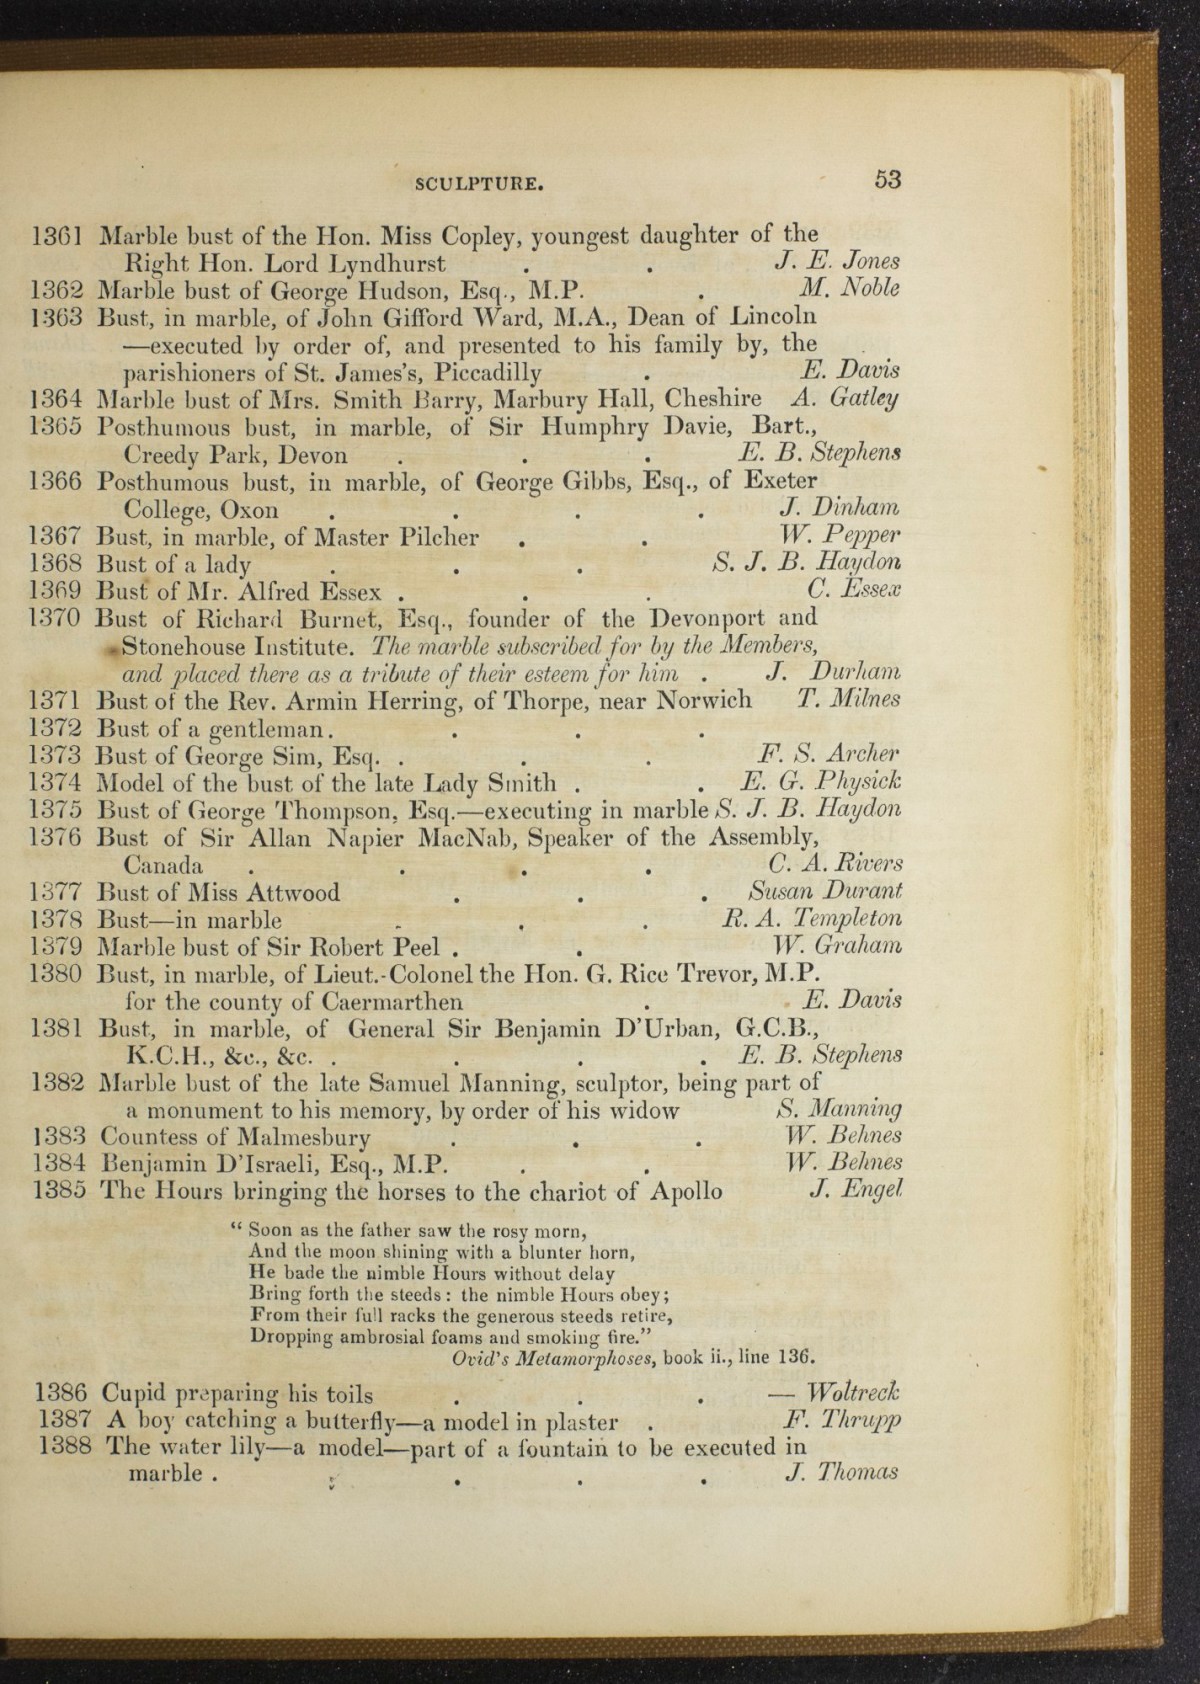 SCULPTURE. 53
1361 Marble bust of the Hon. Miss Copley, youngest daughter of the
Right Hon. Lord Lyndhurst . . J. E. Jones
1362 Marble bust of George Hudson, Esq., M.P. . M. Noble
1363 Bust, in marble, of John Gifford Ward, M.A., Dean of Lincoln
—executed by order of, and presented to his family by, the
parishioners of St. James's, Piccadilly . E. Davis
1364 Marble bust of Mrs. Smith Barry, Marbury Hall, Cheshire A. Gatley
1365 Posthumous bust, in marble, of Sir Humphry Davie, Bart.,
Creedy Park, Devon . . . E. B. Stephens
1366 Posthumous bust, in marble, of George Gibbs, Esq., of Exeter
College, Oxon . . . . J. Dinham
1367 Bust, in marble, of Master Pilcher . . W. Pepper
1368 Bust of a lady . . . S. J. B. Haydon
1369 Bust of Mr. Alfred Essex . . . C. Essex
1370 Bust of Richard Burnet, Esq., founder of the Devonport and
Stonehouse Institute. The marble subscribed for by the Members,
and placed there as a tribute of their esteem for him . J. Durham
1371 Bust of the Rev. Armin Herring, of Thorpe, near Norwich T. Milnes
1372 Bust of a gentleman . . . .
1373 Bust of George Sim, Esq. . . . F. S. Archer
1374 Model of the bust of the late Lady Smith . . E. G. Physick
1375 Bust of George Thompson, Esq.—executing in marble S. J. B. Haydon
1376 Bust of Sir Allan Napier MacNab, Speaker of the Assembly,
Canada . . . . C. A. Rivers
1377 Bust of Miss Attwood . . . Susan Durant
1378 Bust—in marble . . . R. A. Templeton
1379 Marble bust of Sir Robert Peel . . W. Graham
1380 Bust, in marble, of Lieut.-Colonel the Hon. G. Rice Trevor, M.P.
for the county of Caermarthen . E. Davis
1381 Bust, in marble, of General Sir Benjamin D'Urban, G.C.B.,
K.C.H., &c., &c. . . . . E. B. Stephens
1382 Marble bust of the late Samuel Manning, sculptor, being part of
a monument to his memory, by order of his widow S. Manning
1383 Countess of Malmesbury . . . W. Behnes
1384 Benjamin D'Israeli, Esq., M.P. . . W. Behnes
1385 The Hours bringing the horses to the chariot of Apollo J. Engel
“ Soon as the father saw the rosy morn,
And the moon shining with a blunter horn,
He bade the nimble Hours without delay
Bring forth the steeds : the nimble Hours obey;
From their full racks the generous steeds retire,
Dropping ambrosial foams and smoking fire.”
Ovid's Metamorphoses, book ii., line 136.
1386 Cupid preparing his toils . . . — Woltreck
1387 A boy catching a butterfly—a model in plaster . F. Thrupp
1388 The water lily—a model—part of a fountain to be executed in
marble . . . . . J. Thomas